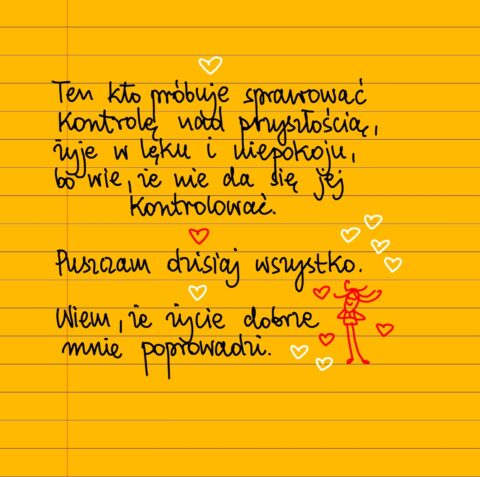 Ten kto próbuje sprawować
kontrolę nad przyszłością,
żyje w lęku i niepokoju,
bo wie, że nie da się jej
kontrolować.
Puszczam dzisiaj wszystko.
Wiem, że życie dobrze
mnie poprowadzi.